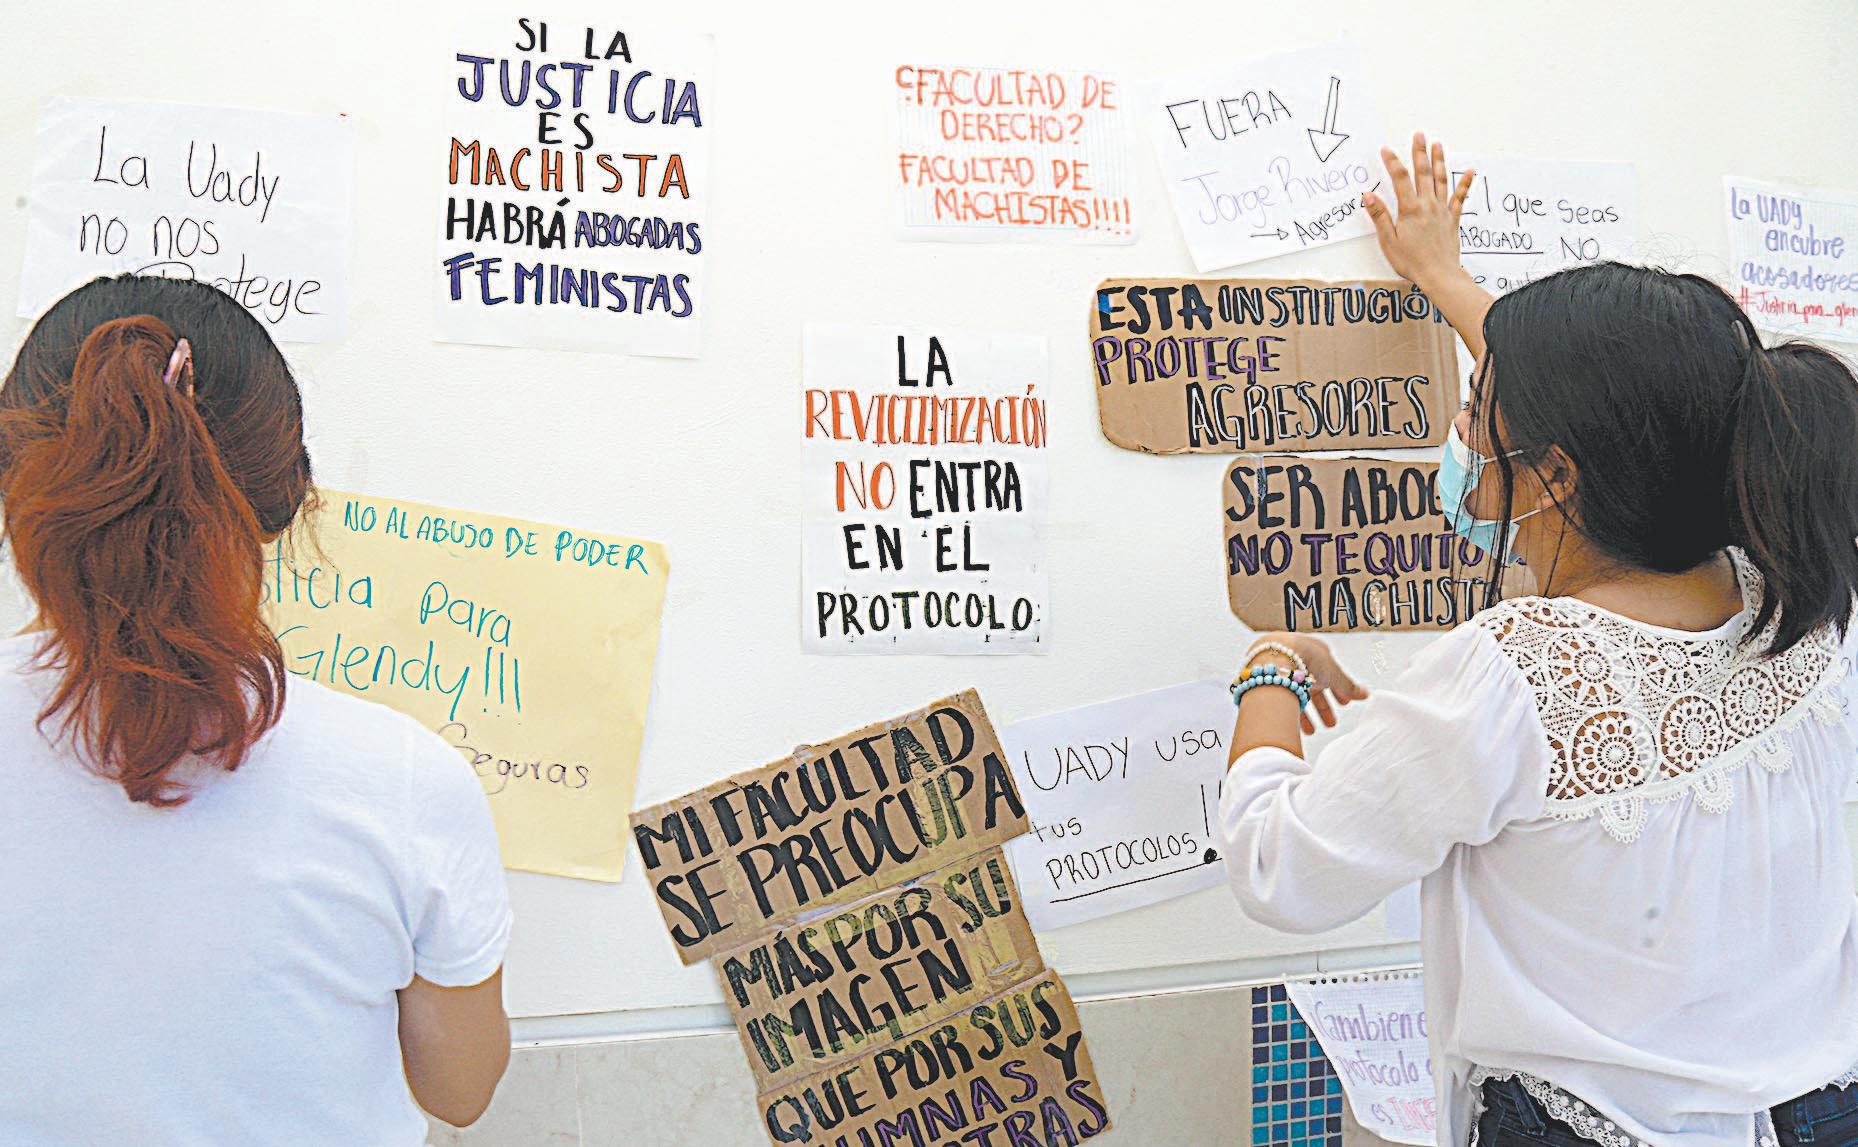 La Uady
no nos
Protege
SI LA
JUSTICIA
ES
MACHISTA
HABRÁ ABOGADAS
FEMINISTAS
¿FACULTAD DE
DERECHO?
FACULTAD DE
MACHISTAS!!!!
FUERA
Jorge Rivero
→ Agresor
El que seas
ABOGADO NO
La UADY
encubre
acosadores
LA
REVICTIMIZACIÓN
NO ENTRA
EN EL
PROTOCOLO
ESTA INSTITUCIÓ
PROTEGE
AGRESORES
SER ABOG
NO TE QUITO
MACHIST
NO AL ABUJO DE PODER
ticia para
Glendy!!!
Seguras
MI FACULTAD
SE PREOCUPA
MÁS POR SU
IMAGEN
QUE POR SUS
UMNAS Y
OTRAS
UADY usa
tus
PROTOCOLOS!
Cambien e
protocolo
es